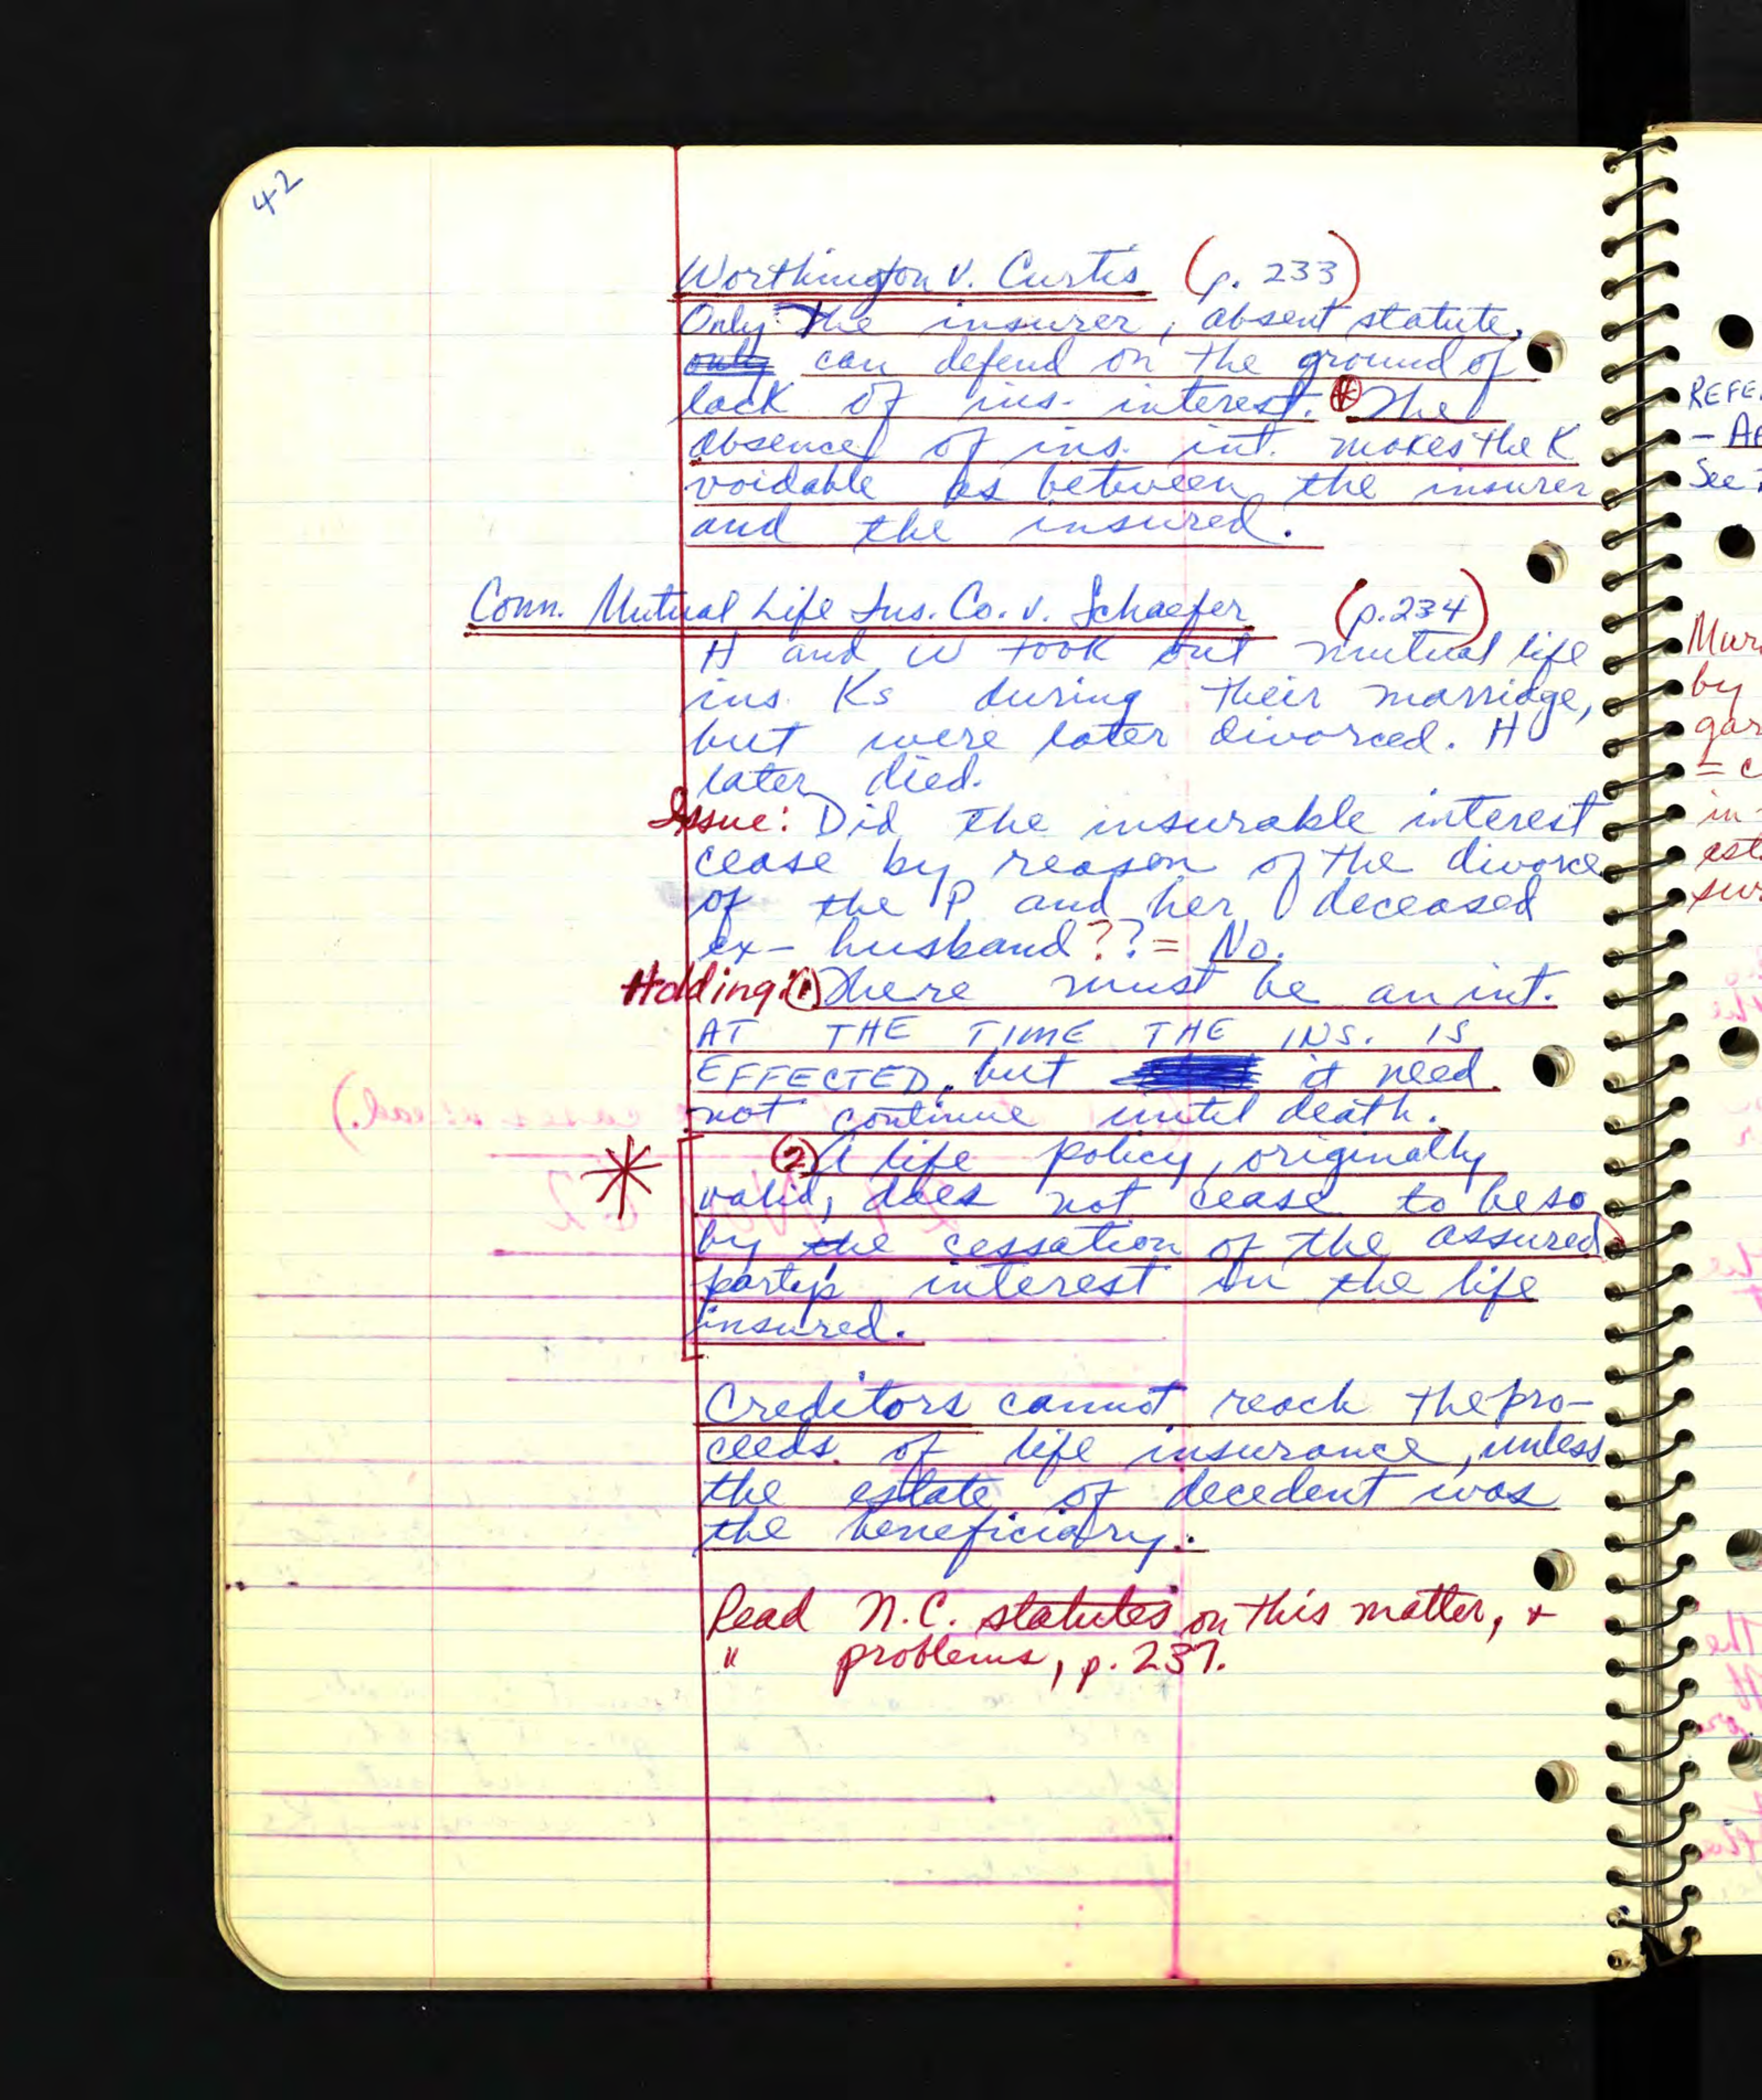 42
Worthington v. Curtis (p. 233)
Only The insurer, absent statute,
only can defend on the ground of
lack of ins. interest. * The
absence of ins. int. makes the K
voidable as between the insurer
and the insured.
Conn. Mutual Life Ins. Co. v. Schaefer (p. 234)
H and W took out mutual life
ins. Ks during their marriage,
but were later divorced. H
later died.
Issue: Did the insurable interest
cease by reason of the divorce
of the P and her deceased
ex-husband?? = No.
Holding: ① There must be an int.
AT THE TIME THE INS. IS
EFFECTED, but it need
not continue until death.
* ② A life policy, originally
valid, does not cease to be so
by the cessation of the assured
party's interest in the life
insured.
Creditors cannot reach the pro-
ceeds of life insurance, unless
the estate of decedent was
the beneficiary.
Read N.C. statutes on this matter, +
" problems, p. 237.
REFE
- AF
See
Mur
by
gar
= c
in
est
sur